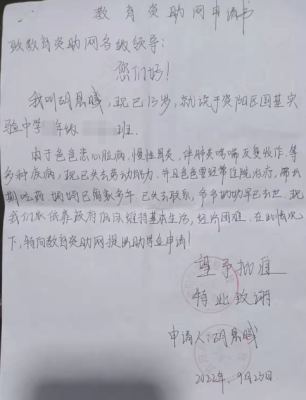 教育资助网申请书
致教育资助网各级领导：
您们好！
我叫胡晨曦，现已13岁，就读于资阳区国基实
验中学 年级 班。
由于爸爸患心脏病、慢性胃炎，伴肺炎哮喘反复发作等
多种疾病，现已失去劳动能力，并且爸爸要经常住院治疗，需长
期吃药。妈妈已离家多年，已失去联系，爷爷奶奶早已去世，现
我们依靠政府低保维持基本生活，经济困难。在此情况
下，特向教育资助网提出助学申请！
望予批准
特此致谢
申请人：胡晨曦
2022年9月23日